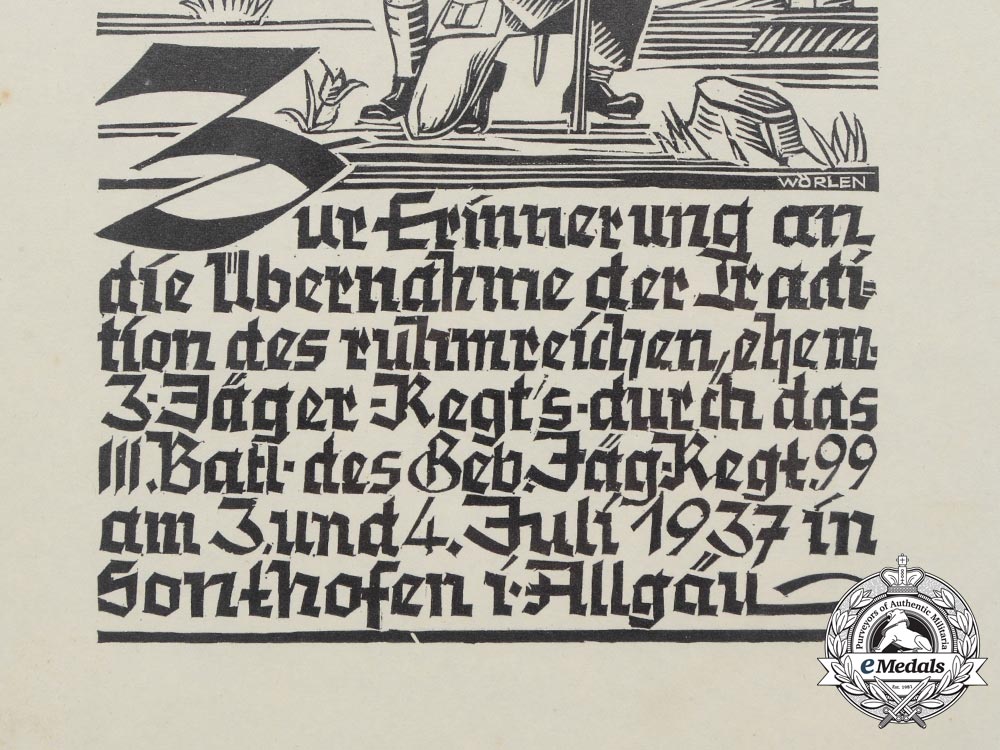 WÖRLEN
Zur Erinnerung an
die Übernahme der Tradi-
tion des ruhmreichen, ehem.
3. Jäger Regt's. durch das
III. Batl. des Geb. Jäg. Regt. 99
am 3. und 4. Juli 1937 in
Sonthofen i. Allgäu
Purveyors of Authentic Militaria
eMedals
Est. 1987